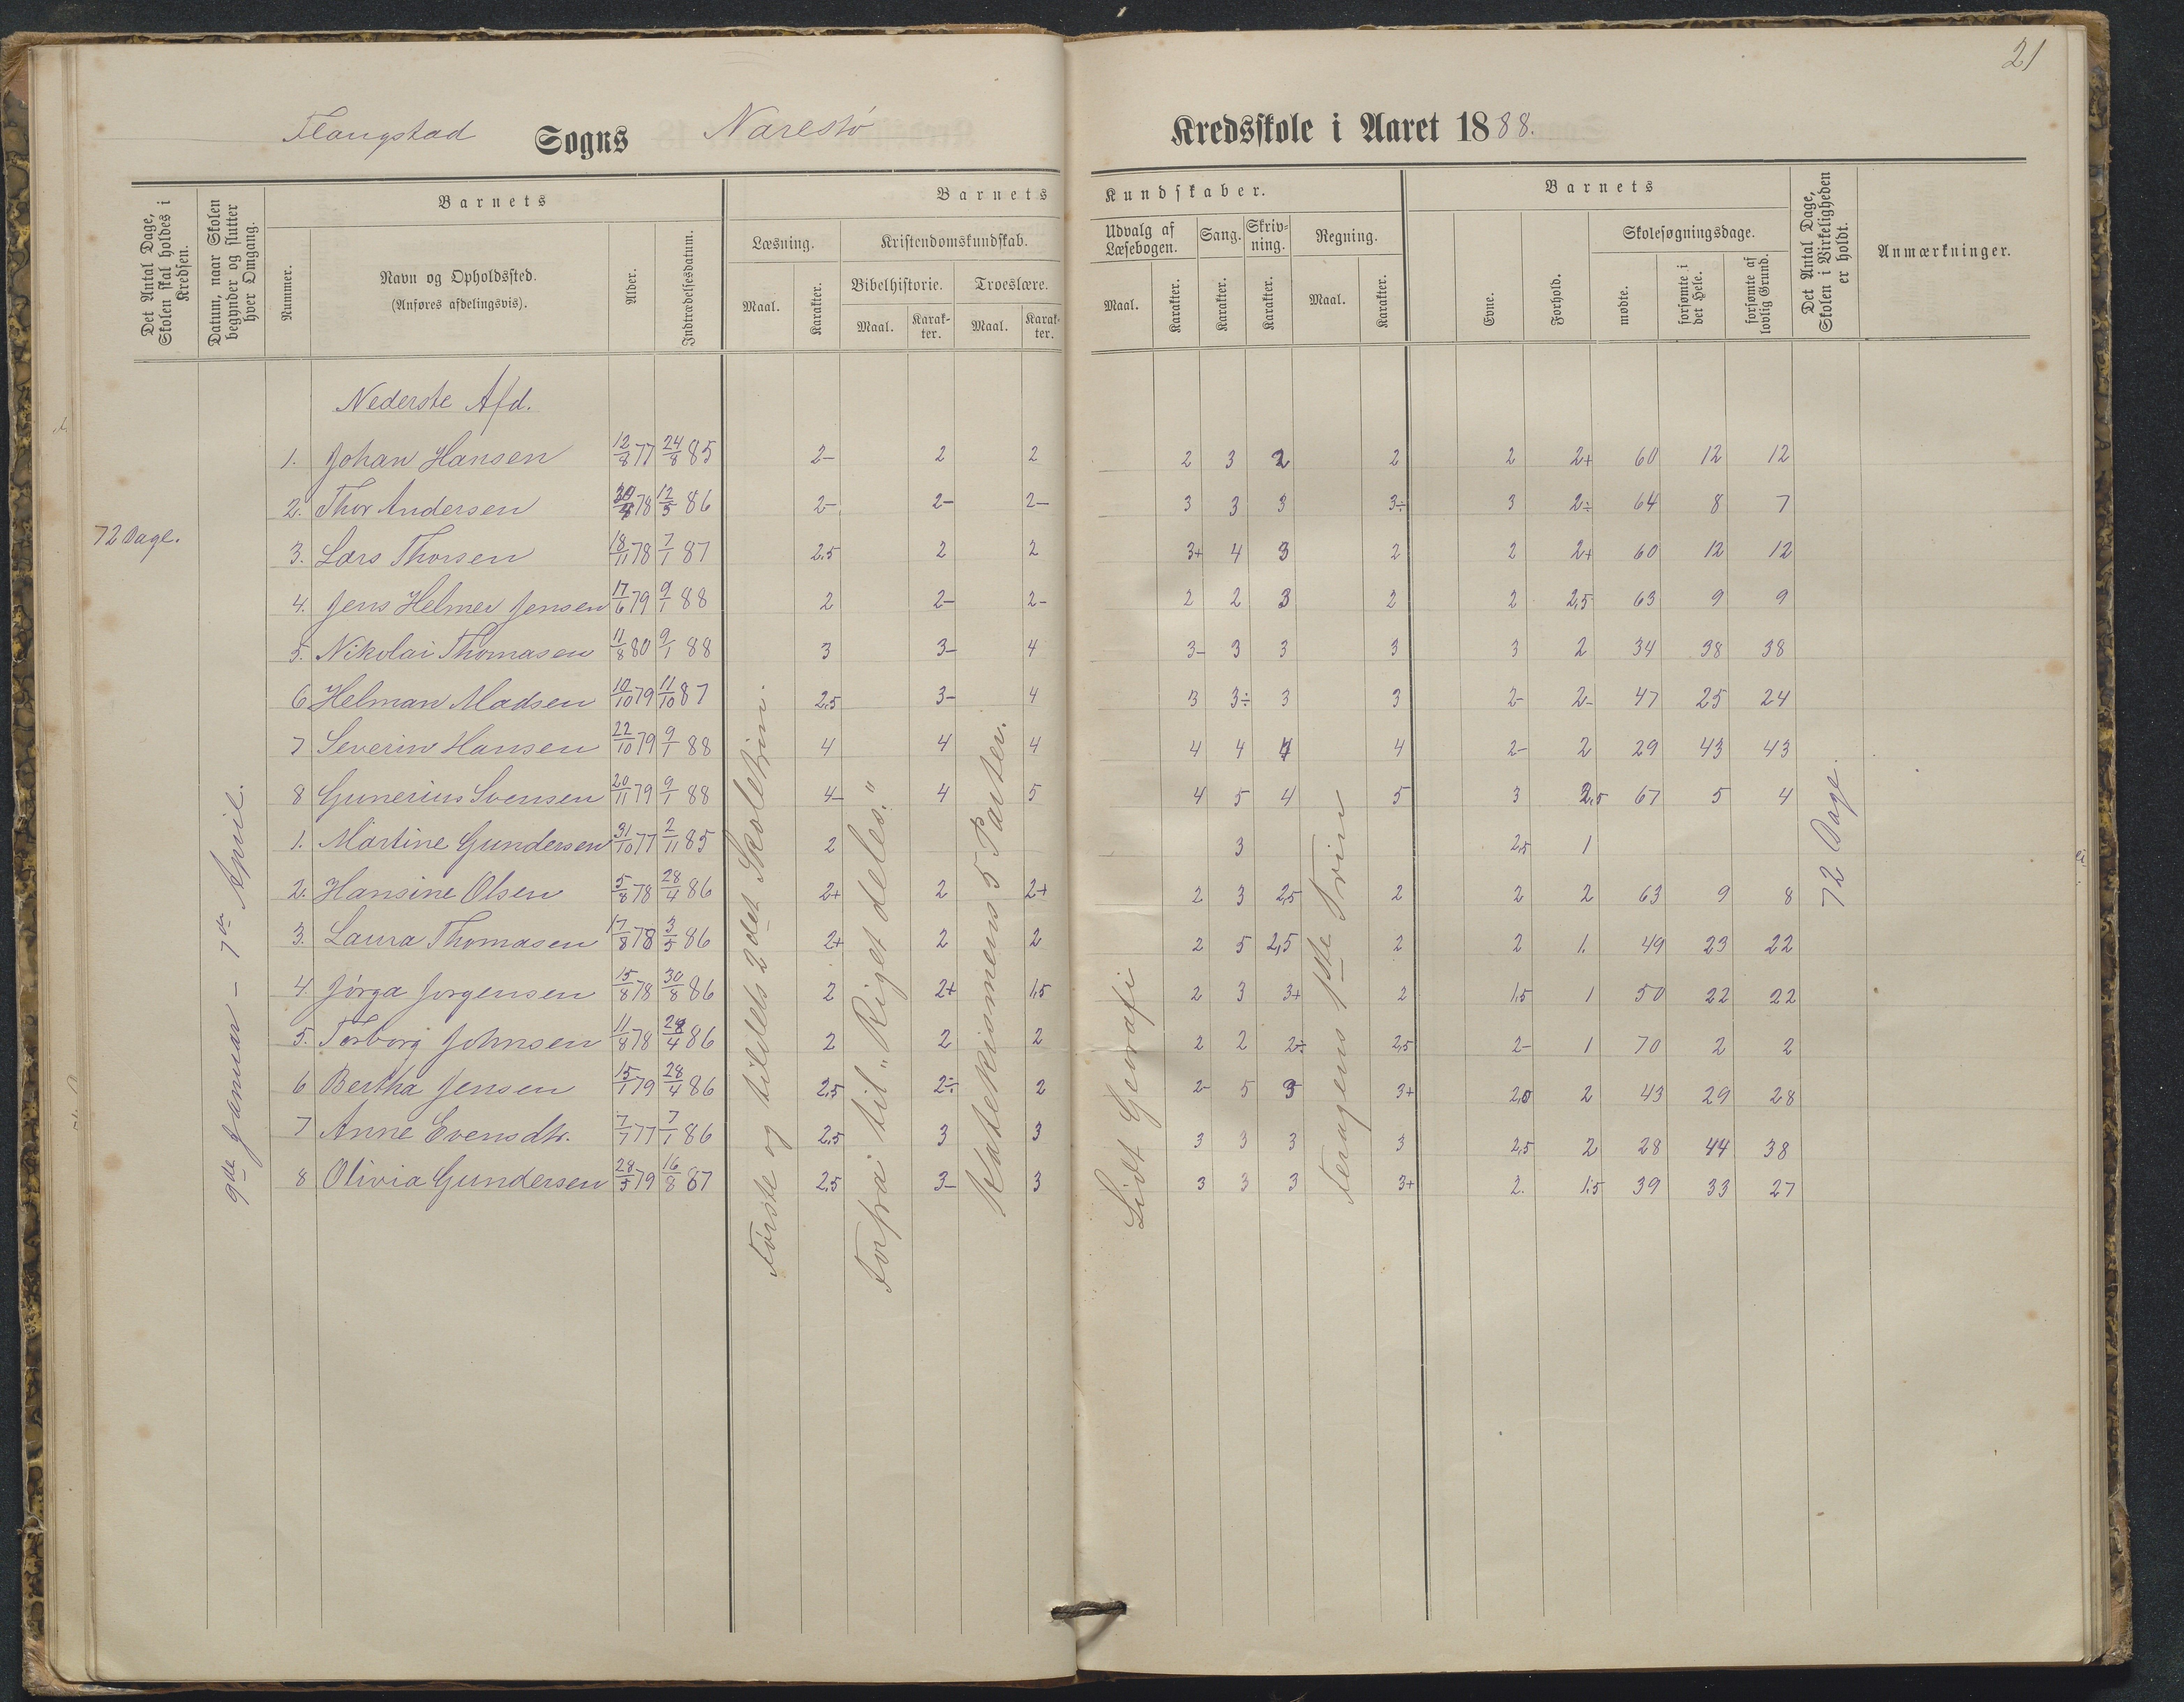 21
Flangstad Sogns Narestø Kredsskole i Aaret 1888.
Det Antal Dage, Skolen skal holdes i Kredsen.
Datum, naar Skolen begynder og slutter hver Omgang.
Barnets
Nummer.
Navn og Opholdssted.
(Anføres afdelingsvis).
Alder.
Indtrædelsesdatum.
Barnets Kundskaber.
Læsning.
Maal.
Karakter.
Kristendomskundskab.
Bibelhistorie.
Maal.
Karakter.
Troeslære.
Maal.
Karakter.
Udvalg af Læsebogen.
Maal.
Karakter.
Sang.
Karakter.
Skrivning.
Karakter.
Regning.
Maal.
Karakter.
Barnets
Evne.
Forhold.
Skolesøgningsdage.
mødte.
forsømte i det Hele.
forsømte af lovlig Grund.
Det Antal Dage, Skolen i Virkeligheden er holdt.
Anmærkninger.
Nederste Afd.
1. Johan Hansen 12/8 77 24/8 85 2- 2 2 2 3 2 2 2 2+ 60 12 12
2. Thor Andersen 78 12/5 86 2- 2- 2- 3 3 3 3÷ 3 2÷ 64 8 7
72 Dage.
3. Lars Thorsen 18/11 78 7/1 87 2.5 2 2 3+ 4 3 2 2 2+ 60 12 12
4. Jens Helmer Jensen 17/6 79 9/1 88 2 2- 2- 2 2 3 2 2 2,5 63 9 9
5. Nikolai Thomasen 11/8 80 9/1 88 3 3- 4 3- 3 3 3 3 2 34 38 38
6 Helman Madsen 10/10 79 11/10 87 2,5 3- 4 3 3÷ 3 3 2- 2- 47 25 24
7 Severin Hansen 22/10 79 9/1 88 4 4 4 4 4 4 4 2- 2 29 43 43
8 Gunerius Svensen 20/11 79 9/1 88 4- 4 5 4 5 4 5 3 2,5 67 5 4
1. Martine Gundersen 31/10 77 2/11 85 2 3 2,5 1
2. Hansine Olsen 5/8 78 28/4 86 2+ 2 2+ 2 3 2,5 2 2 2 63 9 8
3. Laura Thomasen 17/8 78 3/5 86 2+ 2 2 2 5 2,5 2 2 1. 49 23 22
4. Jörga Jorgensen 15/8 78 30/8 86 2 2+ 1,5 2 3 3+ 2 1,5 1 50 22 22
5. Torborg Johnsen 11/8 78 28/4 86 2 2 2 2 2 2÷ 2,5 2- 1 70 2 2
6 Bertha Jensen 15/1 79 28/4 86 2,5 2÷ 2 2- 5 3 3+ 2,5 2 43 29 28
7 Anne Evensdtr. 7/7 77 7/1 86 2,5 3 3 3 3 3 3 2,5 2 28 44 38
8 Olivia Gundersen 28/5 79 16/8 87 2,5 3- 3 3 3 3 3+ 2. 1.5 39 33 27
9de Januar - 7de April.
Første og tildels 2det Skoletrin.
Forfra til „Riget deles."
Katekismens 5 Parter.
Lidt Geografi
1ste Trin
72 Dage.